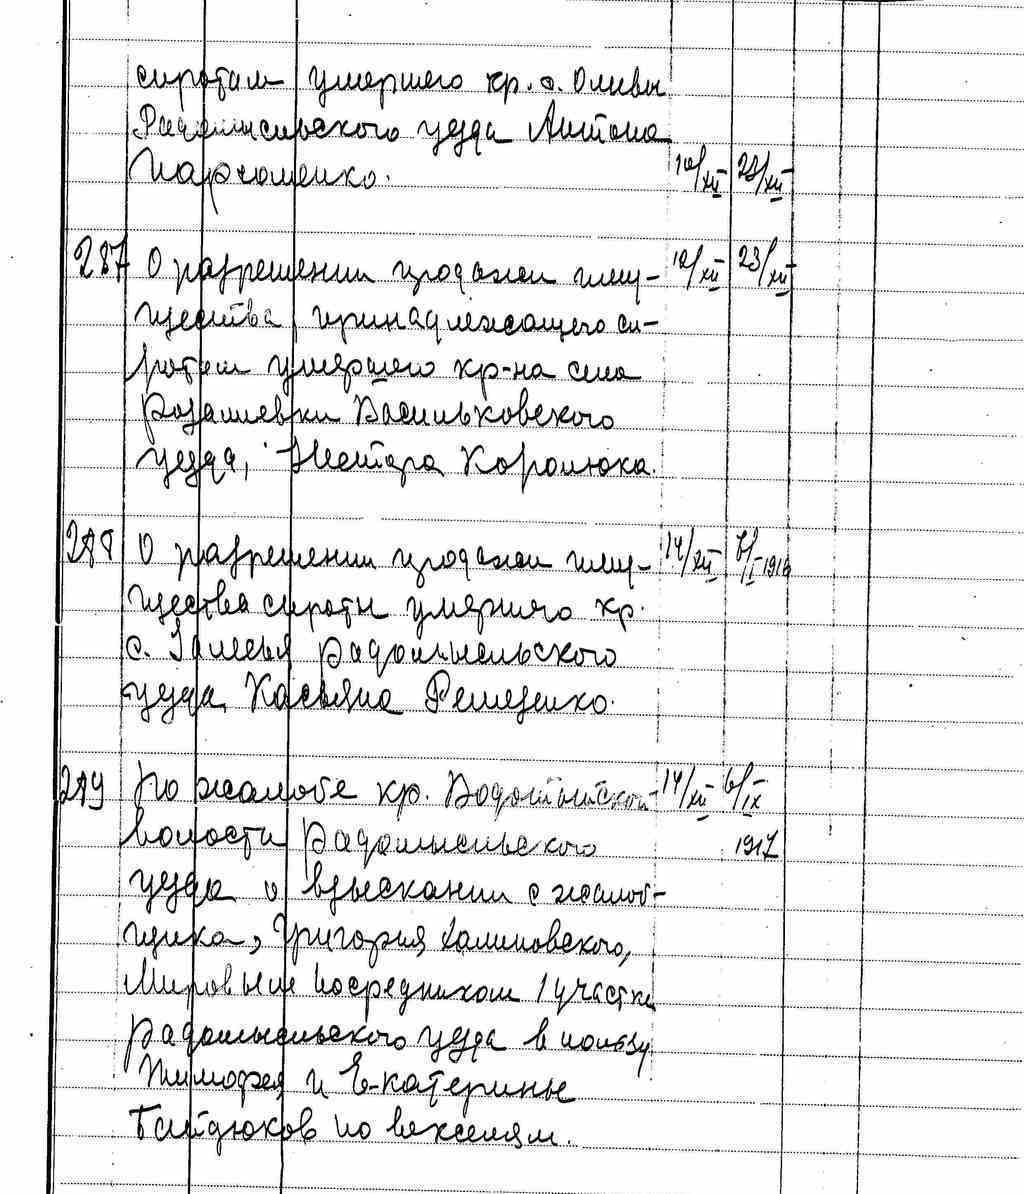 сиротам умершего кр. с. Оливы
Радомысльского уезда Антона
Пархоменко. 10/XII 23/XII
287 О разрешении продажи иму- 10/XII 23/XII
щества, принадлежащего си-
ротам умершего кр-на села
Розалиевки Васильковского
уезда, Нестора Королюка.
288 О разрешении продажи иму- 14/XII 7/II 1916
щества сироты умершего кр.
с. Залесья Радомысльского
уезда Касьяна Ремезенко.
289 По жалобе кр. Водотыйской 14/XII 6/IX
волости Радомысльского 1917
уезда о взыскании с жалоб-
щика, Григория Калиновского,
Мировым посредником 1 участка
Радомысльского уезда в пользу
Тимофея и Екатерины
по векселям.